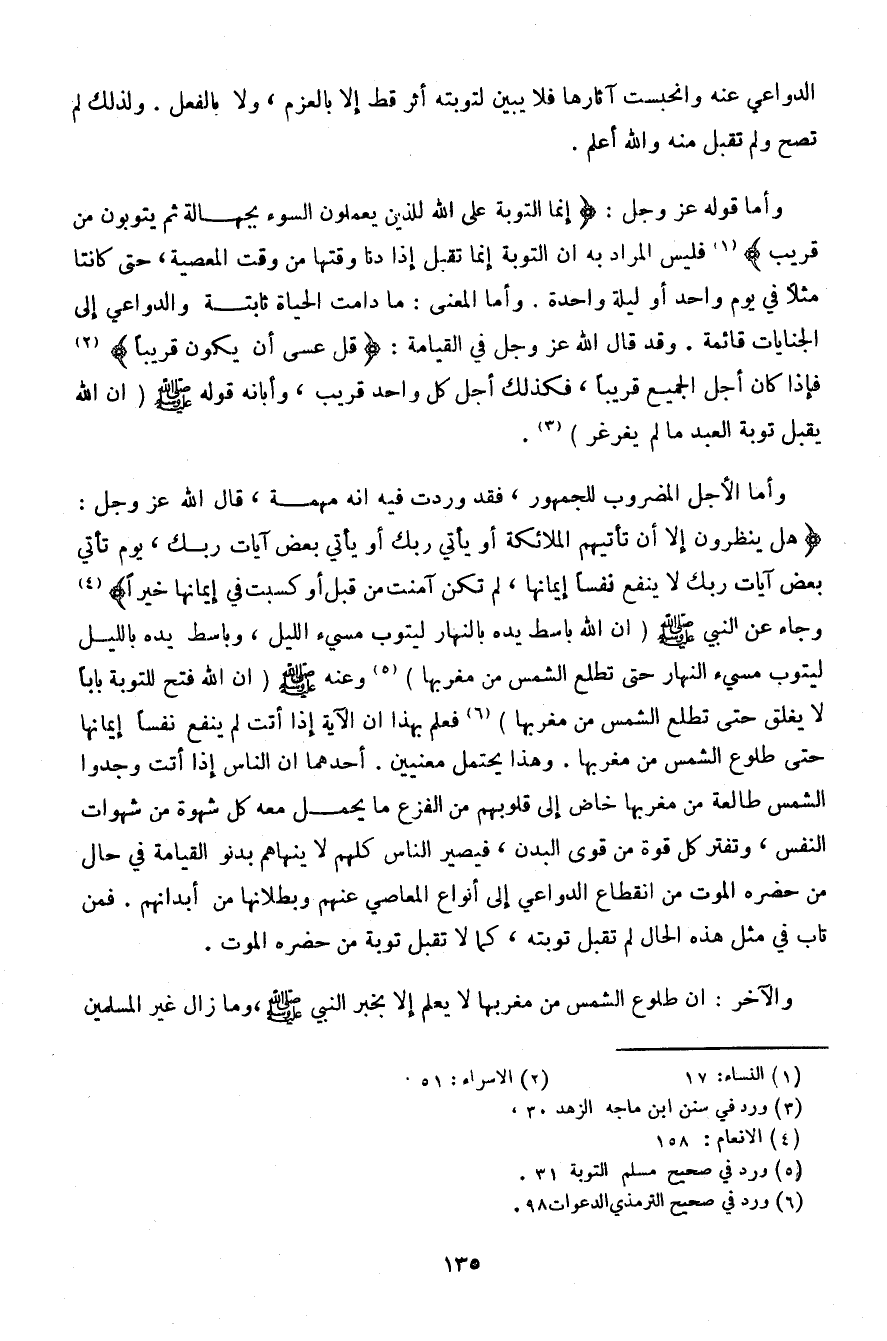 الدواعي عنه وانحبست آثارها فلا يبين لتوبته أثر قط إلا بالعزم ، ولا بالفعل . ولذلك لم
تصح ولم تقبل منه والله أعلم .
وأما قوله عز وجل : ﴿ إنما التوبة على الله للذين يعملون السوء بجهـــالة ثم يتوبون من
قريب ﴾ (١) فليس المراد به ان التوبة إنما تقبل إذا دنا وقتها من وقت المعصية ، حتى كانتا
مثلاً في يوم واحد أو ليلة واحدة . وأما المعنى : ما دامت الحياة ثابتـــة والدواعي إلى
الجنايات قائمة . وقد قال الله عز وجل في القيامة : ﴿ قل عسى أن يكون قريباً ﴾ (٢)
فإذا كان أجل الجميع قريباً ، فكذلك أجل كل واحد قريب ، وأبانه قوله ﷺ ( ان الله
يقبل توبة العبد ما لم يغرغر ) (٣) .
وأما الأجل المضروب للجمهور ، فقد وردت فيه انه مهمـــة ، قال الله عز وجل :
﴿ هل ينظرون إلا أن تأتيهم الملائكة أو يأتي ربك أو يأتي بعض آيات ربــك ، يوم تأتي
بعض آيات ربك لا ينفع نفساً إيمانها ، لم تكن آمنت من قبل أو كسبت في إيمانها خيراً ﴾ (٤)
وجاء عن النبي ﷺ ( ان الله باسط يده بالنهار ليتوب مسيء الليل ، وباسط يده بالليــل
ليتوب مسيء النهار حتى تطلع الشمس من مغربها ) (٥) وعنه ﷺ ( ان الله فتح للتوبة باباً
لا يغلق حتى تطلع الشمس من مغربها ) (٦) فعلم بهذا ان الآية إذا أتت لم ينفع نفساً إيمانها
حتى طلوع الشمس من مغربها . وهذا يحتمل معنيين . أحدهما ان الناس إذا أتت وجدوا
الشمس طالعة من مغربها خاض إلى قلوبهم من الفزع ما يحمـــل معه كل شهوة من شهوات
النفس ، وتفتر كل قوة من قوى البدن ، فيصير الناس كلهم لا ينهاهم بدنو القيامة في حال
من حضره الموت من انقطاع الدواعي إلى أنواع المعاصي عنهم وبطلانها من أبدانهم . فمن
تاب في مثل هذه الحال لم تقبل توبته ، كما لا تقبل توبة من حضره الموت .
والآخر : ان طلوع الشمس من مغربها لا يعلم إلا بخبر النبي ﷺ ،وما زال غير المسلمين
(١) النساء: ١٧ (٢) الاسراء: ٥١ .
(٣) ورد في سنن ابن ماجه الزهد ٣٠ ،
(٤) الانعام : ١٥٨
(٥) ورد في صحيح مسلم التوبة ٣١ .
(٦) ورد في صحيح الترمذي الدعوات ٩٨ .
١٣٥